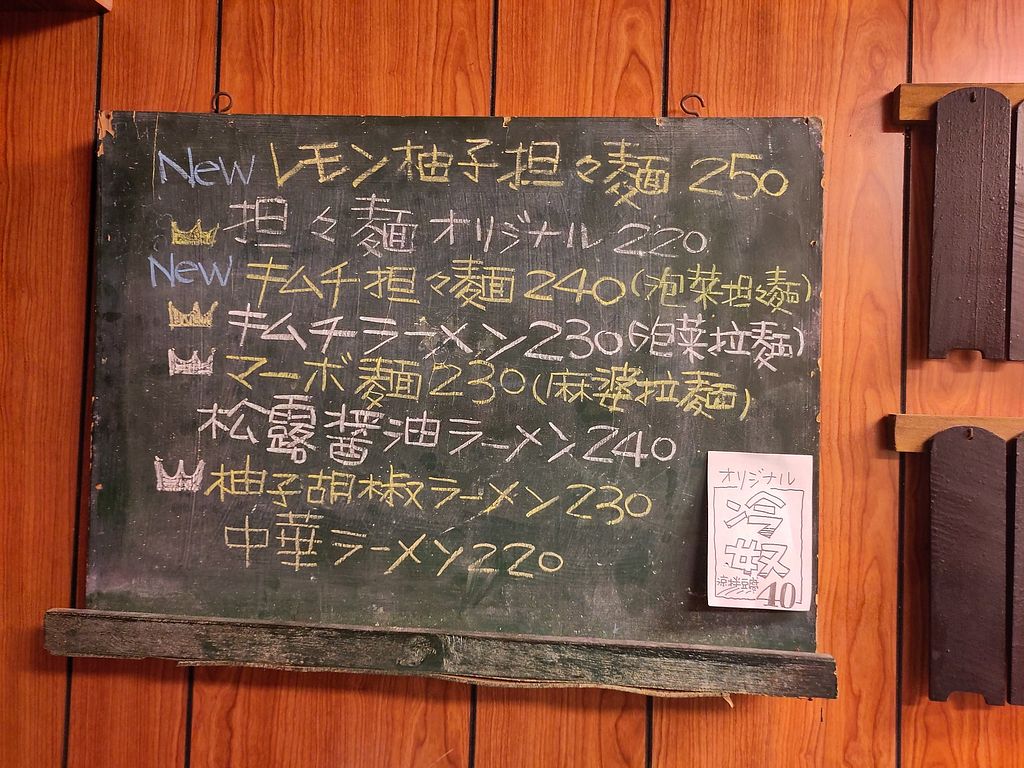 New レモン柚子担々麺 250
担々麺 オリジナル 220
New キムチ担々麺 240 (泡菜坦々麺)
キムチラーメン 230 (泡菜拉麺)
マーボ麺 230 (麻婆拉麺)
松露醤油ラーメン 240
柚子胡椒ラーメン 230
中華ラーメン 220
オリジナル
冷
奴
涼拌豆腐 40